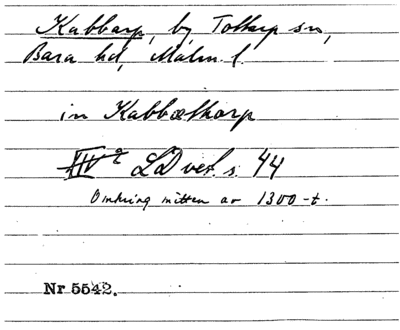 Kabbarp, by, Tottarp sn,
Bara hd, Malm. l.
in Kabbæthorp
LD vet. s. 44
Omkring mitten av 1300-t.
Nr 5542.